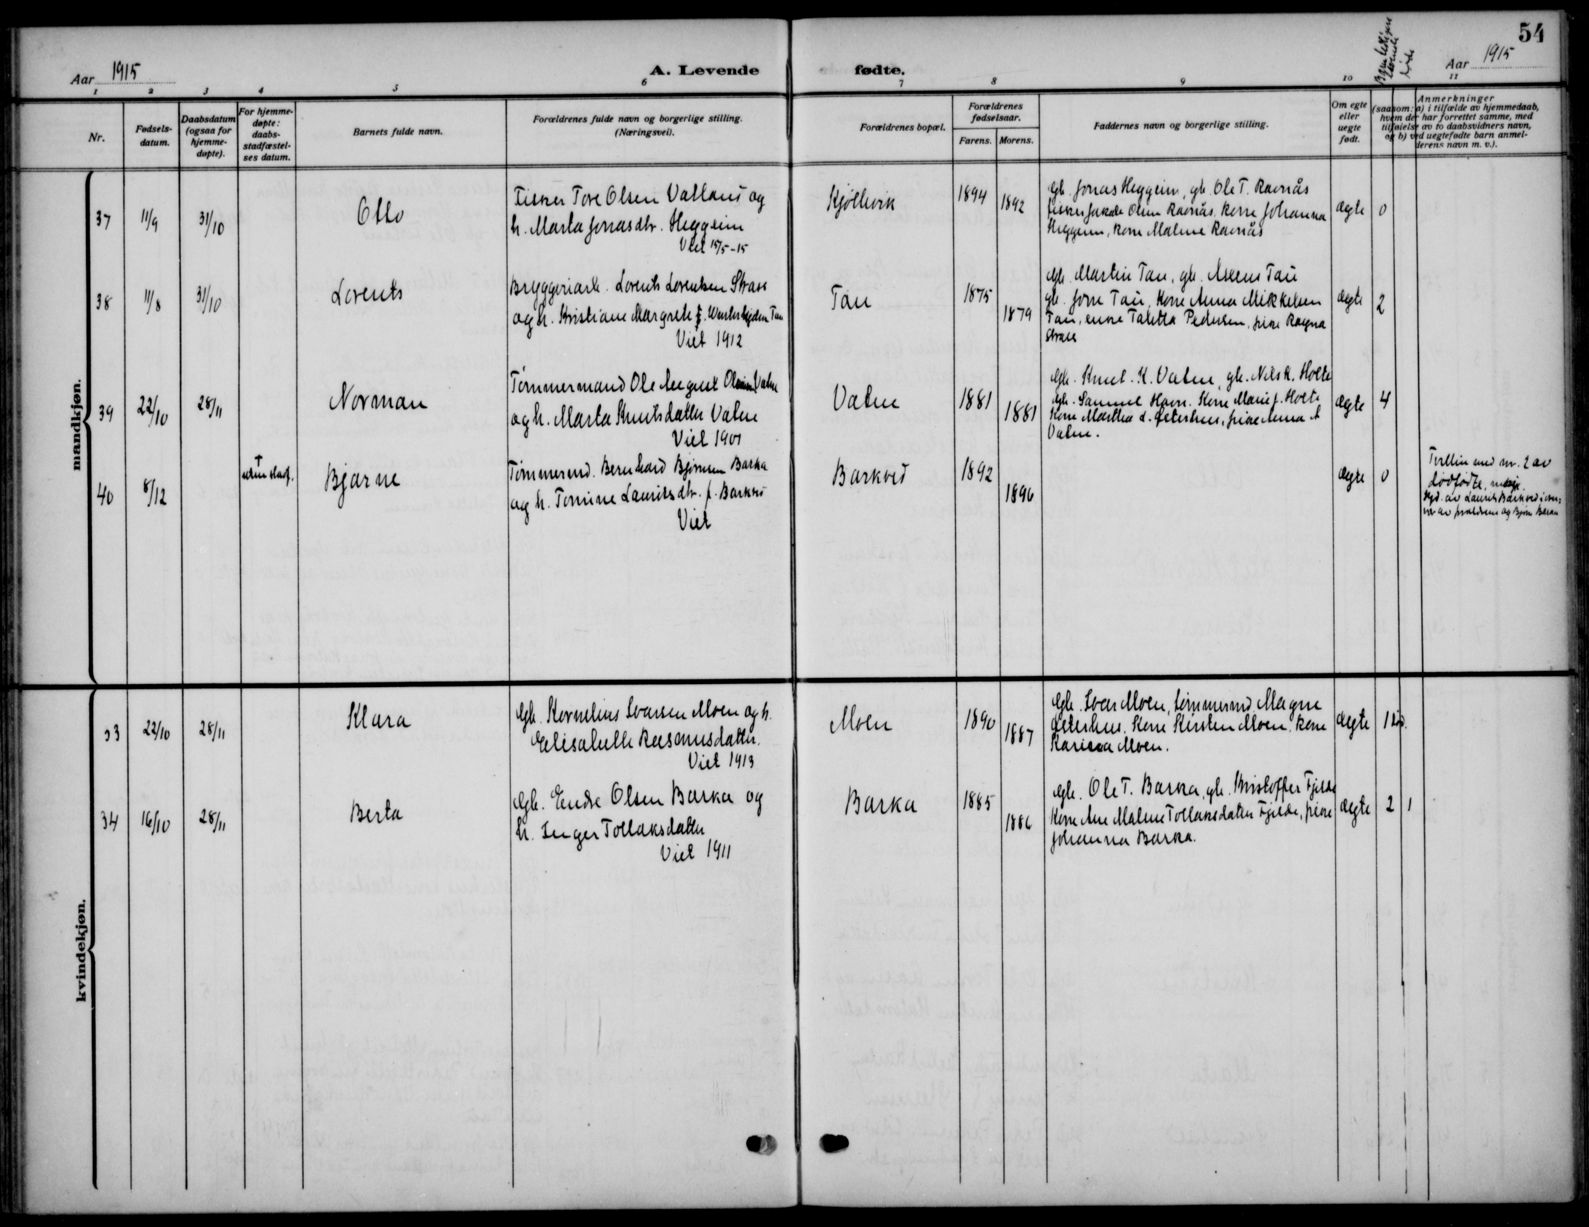 54
Aar 1915
A. Levende
fødte.
Aar 1915
1 2 3 4 5 6 7 8 9 10 11
Nr.
Fødsels-
datum.
Daabsdatum
(ogsaa for
hjemme-
døpte).
For hjemme-
døpte:
daabs-
stadfæstel-
ses datum.
Barnets fulde navn.
Forældrenes fulde navn og borgerlige stilling.
(Næringsvei).
Forældrenes bopæl.
Forældrenes
fødselsaar.
Farens. Morens.
Faddernes navn og borgerlige stilling.
Om egte
eller
uegte
født.
Anmerkninger
(saasom: a) i tilfælde av hjemmedaab,
hvem der har forrettet samme, med
tilføielse av to daabsvidners navn,
og b) ved uegtefødte barn anmel-
derens navn m. v.).
mandkjøn.
37 11/9 31/10 Otto
Fisker Tore Olsen Valland og
h. Marta Jonasdtr. Heggeim
Viet 15/5-15
Kjöllevik 1894 1892
gb. Jonas Heggeim, gb. Ole T. Ravnås
fisker Jakob Olsen Ravnås, kone Johanna
Heggeim, kone Malene Ravnås
ægte 0
38 11/8 31/10 Lorents
Bryggeriarb. Lorents Lorentsen Strass
og h. Kristiane Margrete f. Tau
Viet 1912
Tau 1875 1879
gb. Martin Tau, gb. Tau
gb. Tau, kone Anna Mikkelsen
Tau, enke Taletta Pedersen, pike Ragna
Strass
ægte 2
39 22/10 28/11 Norman
Tømmermand Ole August Vatne
og h. Marta Knutsdatter Vatne
Viet 1901
Vatne 1881 1881
gb. Knut K. Vatne, gb. Nils K. Holte
gb. Samuel Kone Marie J. Holte
Kone Marthea pike Anna A
Vatne.
ægte 4
40 8/12 Bjarne
Tømmermd. Bernhard Bjørnsen Barka
og h. Tomine Lauritsdtr. f. Barkved
Viet
Barkved 1892 1896
ægte 0
Tvilling med nr. 2 av
dødfødte,
av Laurits Barkved i
av forældrene og Bjørn Barka
kvindekjøn.
33 22/10 28/11 Klara
gb. Kornelius Ivarsen Moen og h.
Elisabeth Rasmusdatter.
Viet 1913
Moen 1890 1887
gb. Ivar Moen, tømmermd Magne
Kone Kirsten Moen, kone
Moen.
ægte 1
34 16/10 28/11 Berta
gb. Endre Olsen Barka og
h. Inger Tollaksdatter
Viet 1911
Barka 1885 1886
gb. Ole T. Barka, gb. Kristoffer Fjelde
Kone Ane Malene Tollaksdatter Fjelde, pike
Johanna Barka.
ægte 2 1